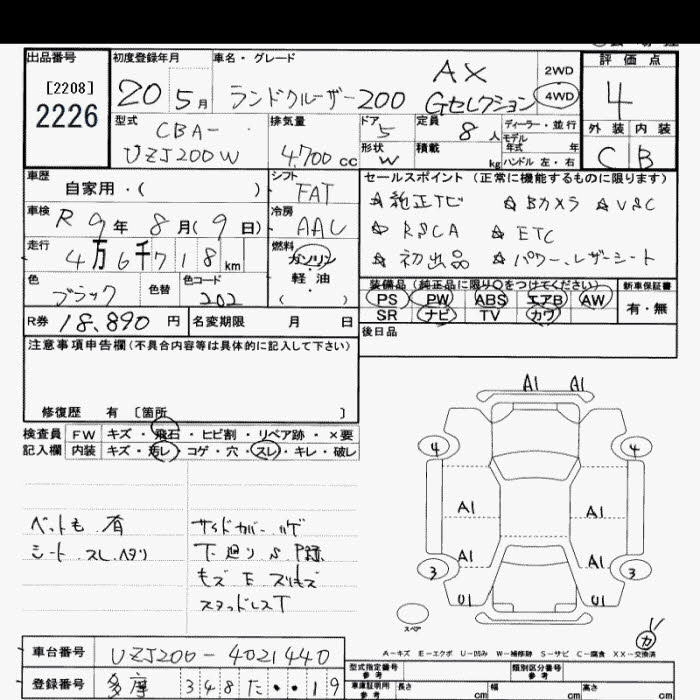 出品番号
[2208]
2226
初度登録年月
20 5月
車名・グレード
ランドクルーザー200
AX
Gセレクション
2WD
4WD
評価点
4
外装 内装
C B
型式
CBA-
UZJ200W
排気量
4,700 cc
ドア
5
形状
W
定員
8 人
積載
kg
ディーラー・並行
モデル
年式 年
ハンドル 左・右
車歴
自家用・( )
シフト
FAT
セールスポイント (正常に機能するものに限ります)
☆ 純正ナビ ☆ Bカメラ ☆ VSC
☆ RSCA ☆ ETC
☆ 初出品 ☆ パワーレザーシート
車検
R 9年 8月(9日)
冷房
AAC
走行
4万6千718km
燃料
ガソリン
軽・油
( )
色
ブラック
色替
色コード
202
装備品 (純正品に限り〇をつけてください)
PS PW ABS エアB AW
SR ナビ TV カワ
新車保証書
有・無
R券 18,890 円
名変期限 月 日
後日品
注意事項申告欄(不具合内容等は具体的に記入して下さい)
修復歴 有 〔箇所 〕
検査員 FW キズ・飛石・ヒビ割・リペア跡・×要
記入欄 内装 キズ・汚レ・コゲ・穴・スレ・キレ・破レ
ペット毛 有
シート スレ ヘタリ
サイドカバー ハゲ
下廻り S P跡
キズ E スリキズ
スタッドレスT
A1 A1
4 4
A1 A1
A1 A1
3 3
U1 U1
スペア
カ
A-キズ E-エクボ U-凹み W-補修跡 S-サビ C-腐食 XX-交換済
車台番号 UZJ200-4021440
登録番号 多摩 348 た ・・19
型式指定番号
参考
類別区分番号
参考
車庫証明用
参考
長さ cm
幅 cm
高さ cm